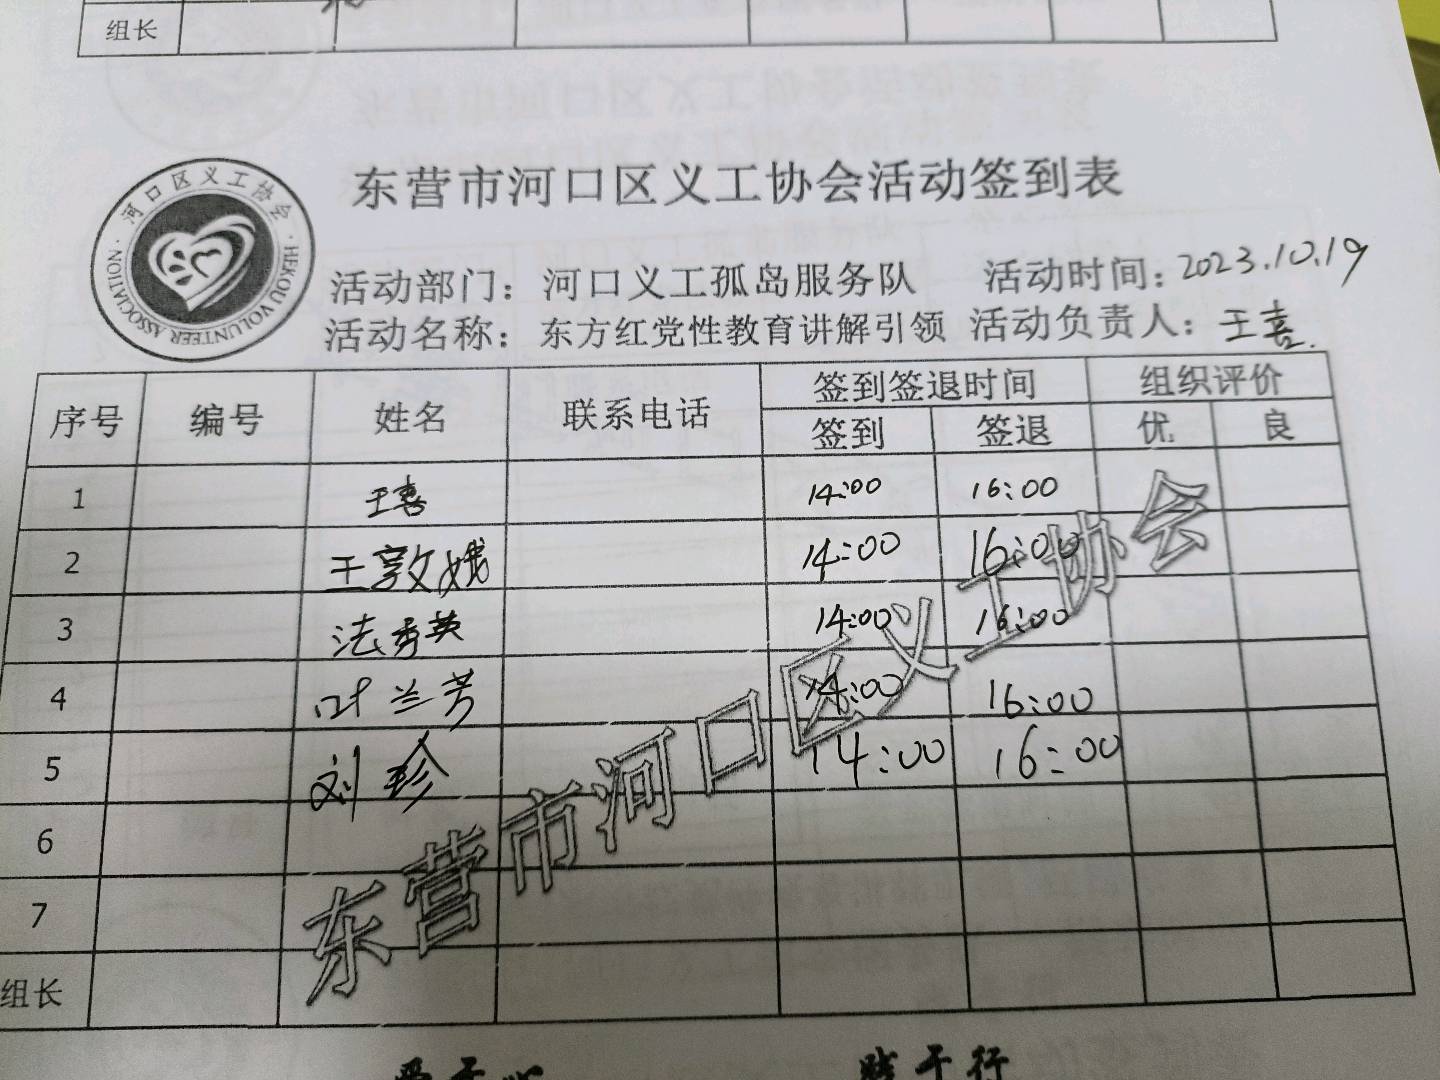 组长
东营市河口区义工协会活动签到表
河口区义工协会
HEKOU VOLUNTEER ASSOCIATION
活动部门：河口义工孤岛服务队 活动时间：2023.10.19
活动名称：东方红党性教育讲解引领 活动负责人：王喜.
序号 编号 姓名 联系电话 签到签退时间 组织评价
签到 签退 优 良
1 王喜 14:00 16:00
2 王敦娥 14:00 16:00
3 法秀英 14:00 16:00
4 叶兰芳 14:00 16:00
5 刘珍 14:00 16:00
6
7
组长
东营市河口区义工协会
践于行